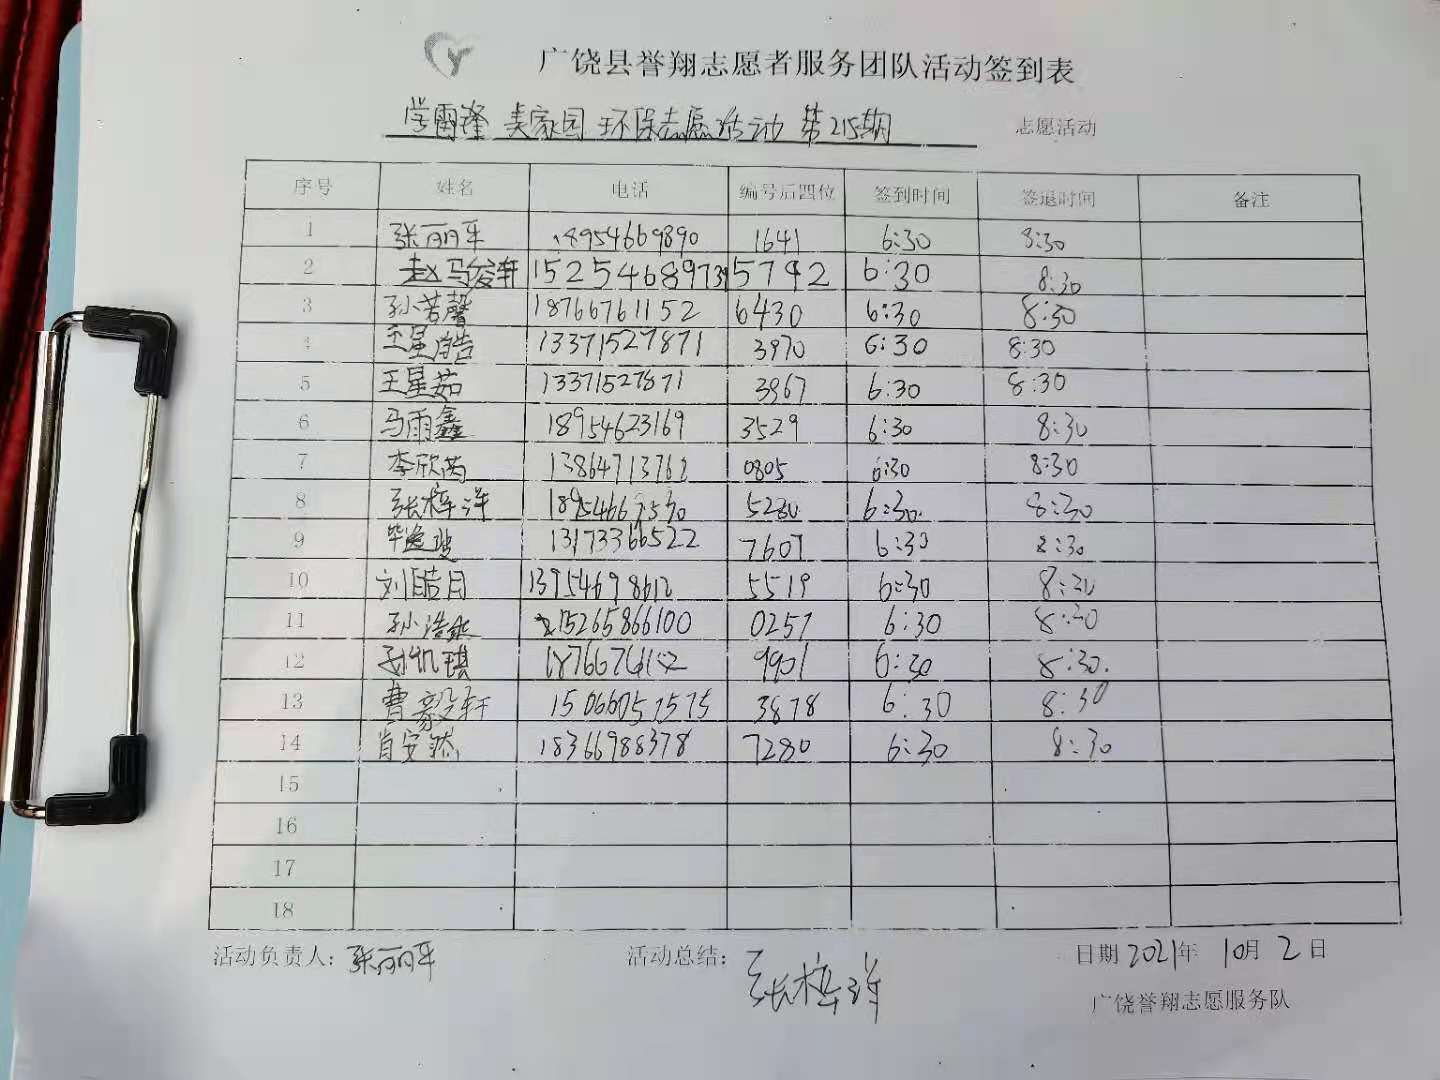 广饶县誉翔志愿者服务团队活动签到表
学雷锋 美家园 环保志愿活动 第215期 志愿活动
序号 姓名 电话 编号后四位 签到时间 签退时间 备注
1 张丽平 18954669890 1641 6:30 8:30
2 赵马俊轩 15254689739 5792 6:30 8:30
3 孙若馨 18766761152 6430 6:30 8:30
4 王星皓 13371527871 3970 6:30 8:30
5 王星茹 13371527871 3967 6:30 8:30
6 马雨鑫 18954623169 3529 6:30 8:30
7 李欣芮 13864713762 0805 6:30 8:30
8 张梓洋 5280 6:30 8:30
9 13173366522 7607 6:30 8:30
10 刘皓月 13954698612 5519 6:30 8:30
11 15265866100 0257 6:30 8:30
12 孙凯琪 9901 6:30 8:30
13 曹毅轩 3878 6:30 8:30
14 肖安然 18366988378 7280 6:30 8:30
15
16
17
18
活动负责人: 张丽平 活动总结: 张梓洋 日期 2021年 10月 2日
广饶誉翔志愿服务队